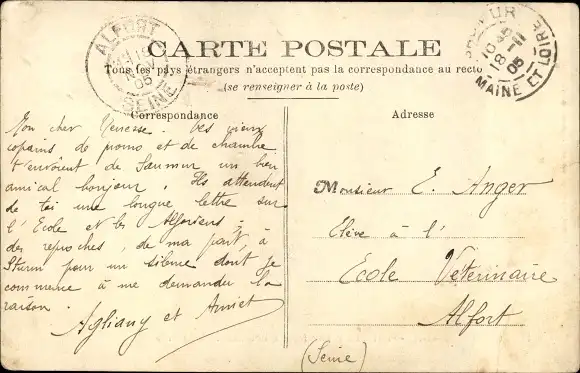 ALFORT
SEINE
SAUMUR
10 35
18 -11
05
MAINE ET LOIRE
CARTE POSTALE
Tous les pays étrangers n'acceptent pas la correspondance au recto
(se renseigner à la poste)
Correspondance
Mon cher Tes vieux
copains de promo et de chambre
t'envoient de Saumur un bien
amical bonjour. Ils attendent
de toi une longue lettre sur
l'Ecole et les Alforiens -
des reproches, de ma part, à
Sturm pour un silence dont je
commence à me demander la
raison.
et
Adresse
Monsieur E. Anger
Elève à l'
Ecole Vétérinaire
Alfort
(Seine)